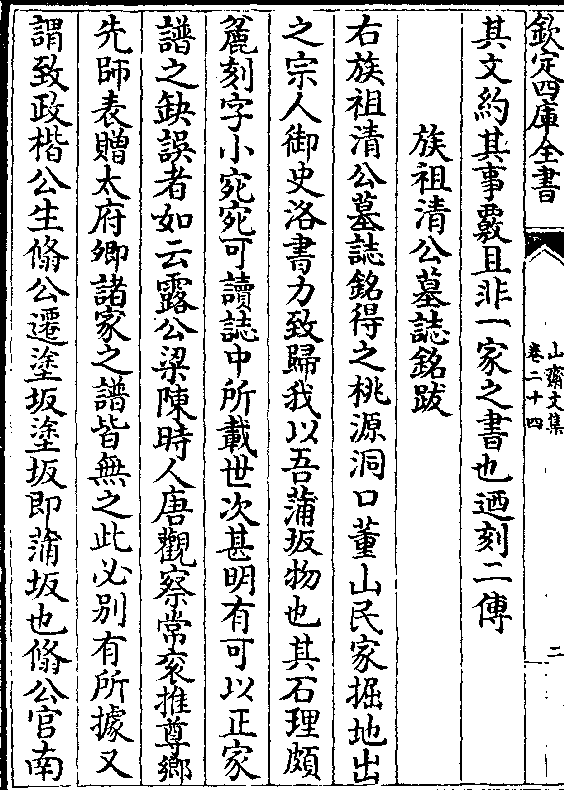 欽定四庫全書
山齋文集
卷二十四
二
其文約其事覈且非一家之書也迺刻二傳
族祖清公墓誌銘跋
右族祖清公墓誌銘得之桃源洞口董山民家掘地出
之宗人御史洛書力致歸我以吾蒲坂物也其石理頗
麄刻字小宛宛可讀誌中所載世次甚明有可以正家
譜之缺誤者如云露公梁陳時人唐觀察常衮推尊鄉
先師表贈太府卿諸家之譜皆無之此必別有所據又
謂致政楷公生脩公遷塗坂塗坂即蒲坂也脩公官南